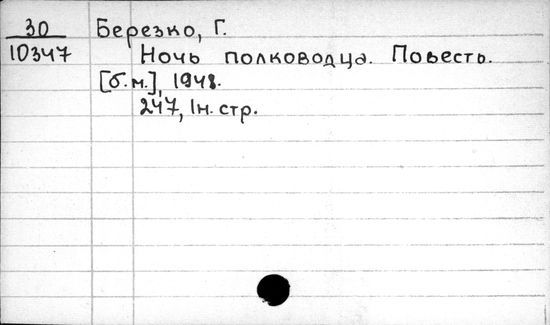 30
10347
Березко, Г.
Ночь полководца. Повесть.
[б.м.], 1948.
247, 1н. стр.